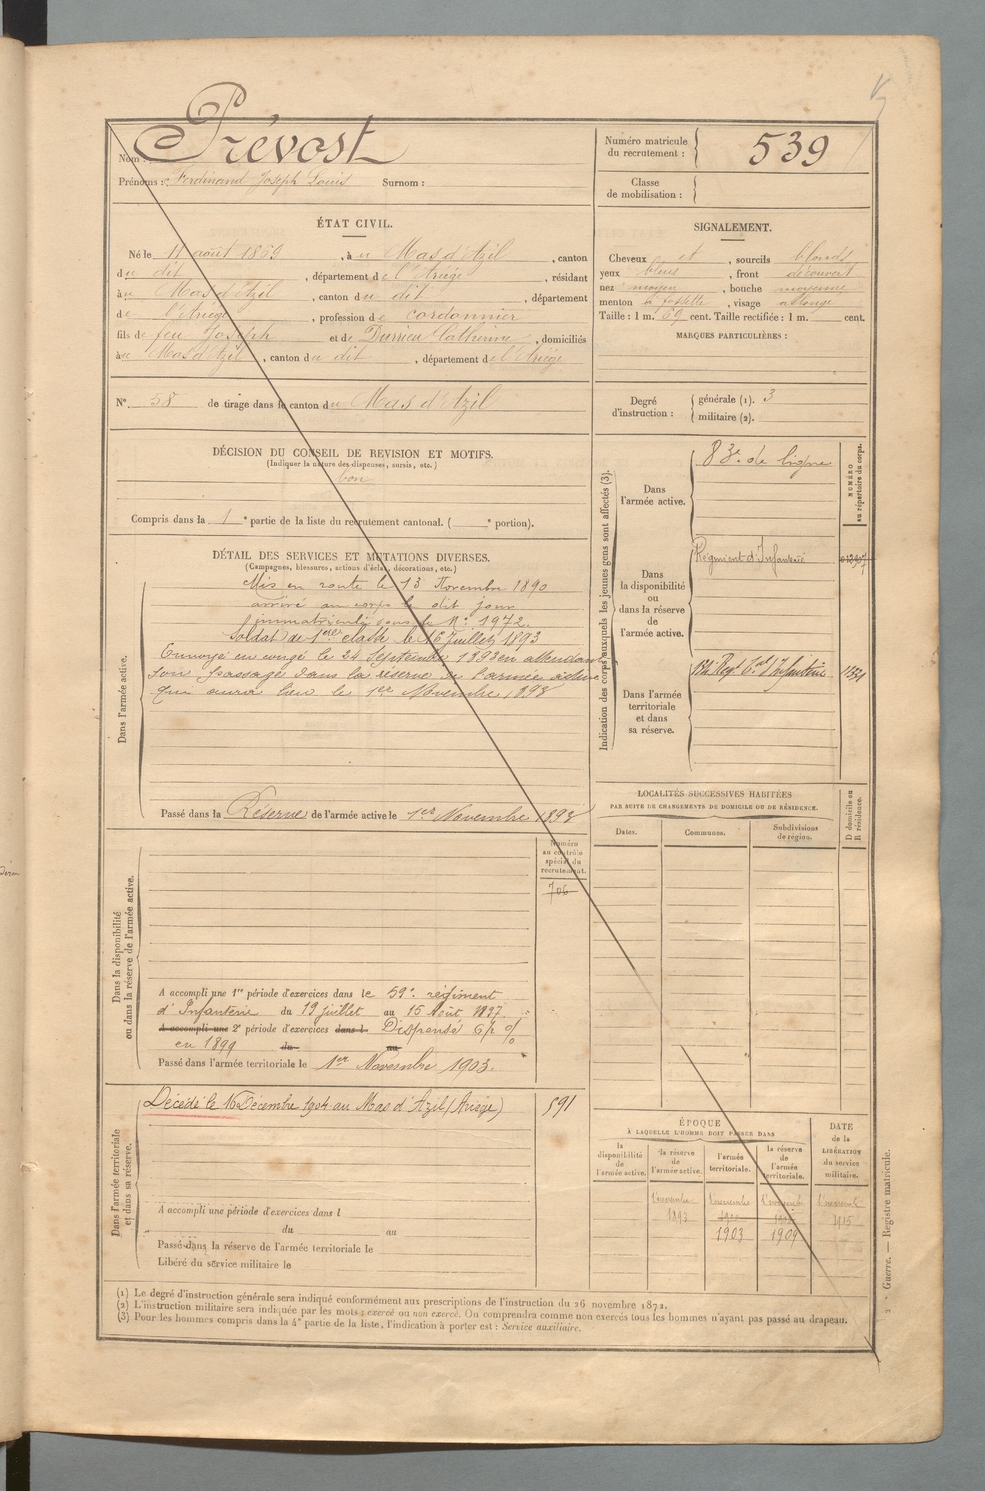 Nom : Prévost
Prénoms : Ferdinand Joseph Louis Surnom :
Numéro matricule du recrutement : 539
Classe de mobilisation :
ÉTAT CIVIL.
Né le 11 août 1869, à u Mas d'Azil, canton
du dit, département de l'Ariège, résidant
à u Mas d'Azil, canton du dit, département
de l'Ariège, profession de cordonnier
fils de feu Joseph et de Durrieu Catherine, domiciliés
à u Mas d'Azil, canton du dit, département de l'Ariège
SIGNALEMENT.
Cheveux et, sourcils blonds
yeux bleus, front découvert
nez moyen, bouche moyenne
menton à fossette, visage allongé
Taille : 1 m. 69 cent. Taille rectifiée : 1 m. cent.
MARQUES PARTICULIÈRES :
N° 58 de tirage dans le canton du Mas d'Azil
Degré d'instruction : générale (1). 3
militaire (2).
DÉCISION DU CONSEIL DE REVISION ET MOTIFS.
(Indiquer la nature des dispenses, sursis, etc.)
bon
Compris dans la 1e partie de la liste du recrutement cantonal. ( e portion).
DÉTAIL DES SERVICES ET MUTATIONS DIVERSES.
(Campagnes, blessures, actions d'éclat, décorations, etc.)
Dans l'armée active.
Mis en route le 13 Novembre 1890
arrivé au corps le dit jour
immatriculé sous le N° 1972.
Soldat de 1ère classe le 16 Juillet 1893
Envoyé en congé le 24 Septembre 1893 en attendant
son passage dans la réserve de l'armée active
qui aura lieu le 1er Novembre 1893
Passé dans la Réserve de l'armée active le 1er Novembre 1893
Indication des corps auxquels les jeunes gens sont affectés (3).
NUMÉRO au répertoire du corps.
Dans l'armée active.
83e de ligne
Dans la disponibilité ou dans la réserve de l'armée active.
Régiment d'Infanterie
Dans l'armée territoriale et dans sa réserve.
134 Régt tal d'Infanterie
LOCALITÉS SUCCESSIVES HABITÉES
PAR SUITE DE CHANGEMENTS DE DOMICILE OU DE RÉSIDENCE.
Dates. Communes. Subdivisions de région. D domicile ou R résidence.
Dans la disponibilité ou dans la réserve de l'armée active.
Numéro au contrôle spécial du recrutement.
706
A accompli une 1re période d'exercices dans le 59e régiment
d'Infanterie du 19 juillet au 15 Août 1897.
A accompli une 2e période d'exercices dans l Dispensé
en 1899 du au
Passé dans l'armée territoriale le 1er Novembre 1903.
Dans l'armée territoriale et dans sa réserve.
Décédé le 16 Décembre 1904 au Mas d'Azil (Ariège) 591
A accompli une période d'exercices dans l
du au
Passé dans la réserve de l'armée territoriale le
Libéré du service militaire le
ÉPOQUE
À LAQUELLE L'HOMME DOIT PASSER DANS
la disponibilité de l'armée active.
la réserve de l'armée active.
l'armée territoriale.
la réserve de l'armée territoriale.
DATE de la LIBÉRATION du service militaire.
1 novembre 1 novembre 1 novembre 1 novembre
1893 1915
1903 1909
(1) Le degré d'instruction générale sera indiqué conformément aux prescriptions de l'instruction du 26 novembre 1872.
(2) L'instruction militaire sera indiquée par les mots : exercé ou non exercé. On comprendra comme non exercés tous les hommes n'ayant pas passé au drapeau.
(3) Pour les hommes compris dans la 4e partie de la liste, l'indication à porter est : Service auxiliaire.
Guerre. — Registre matricule.